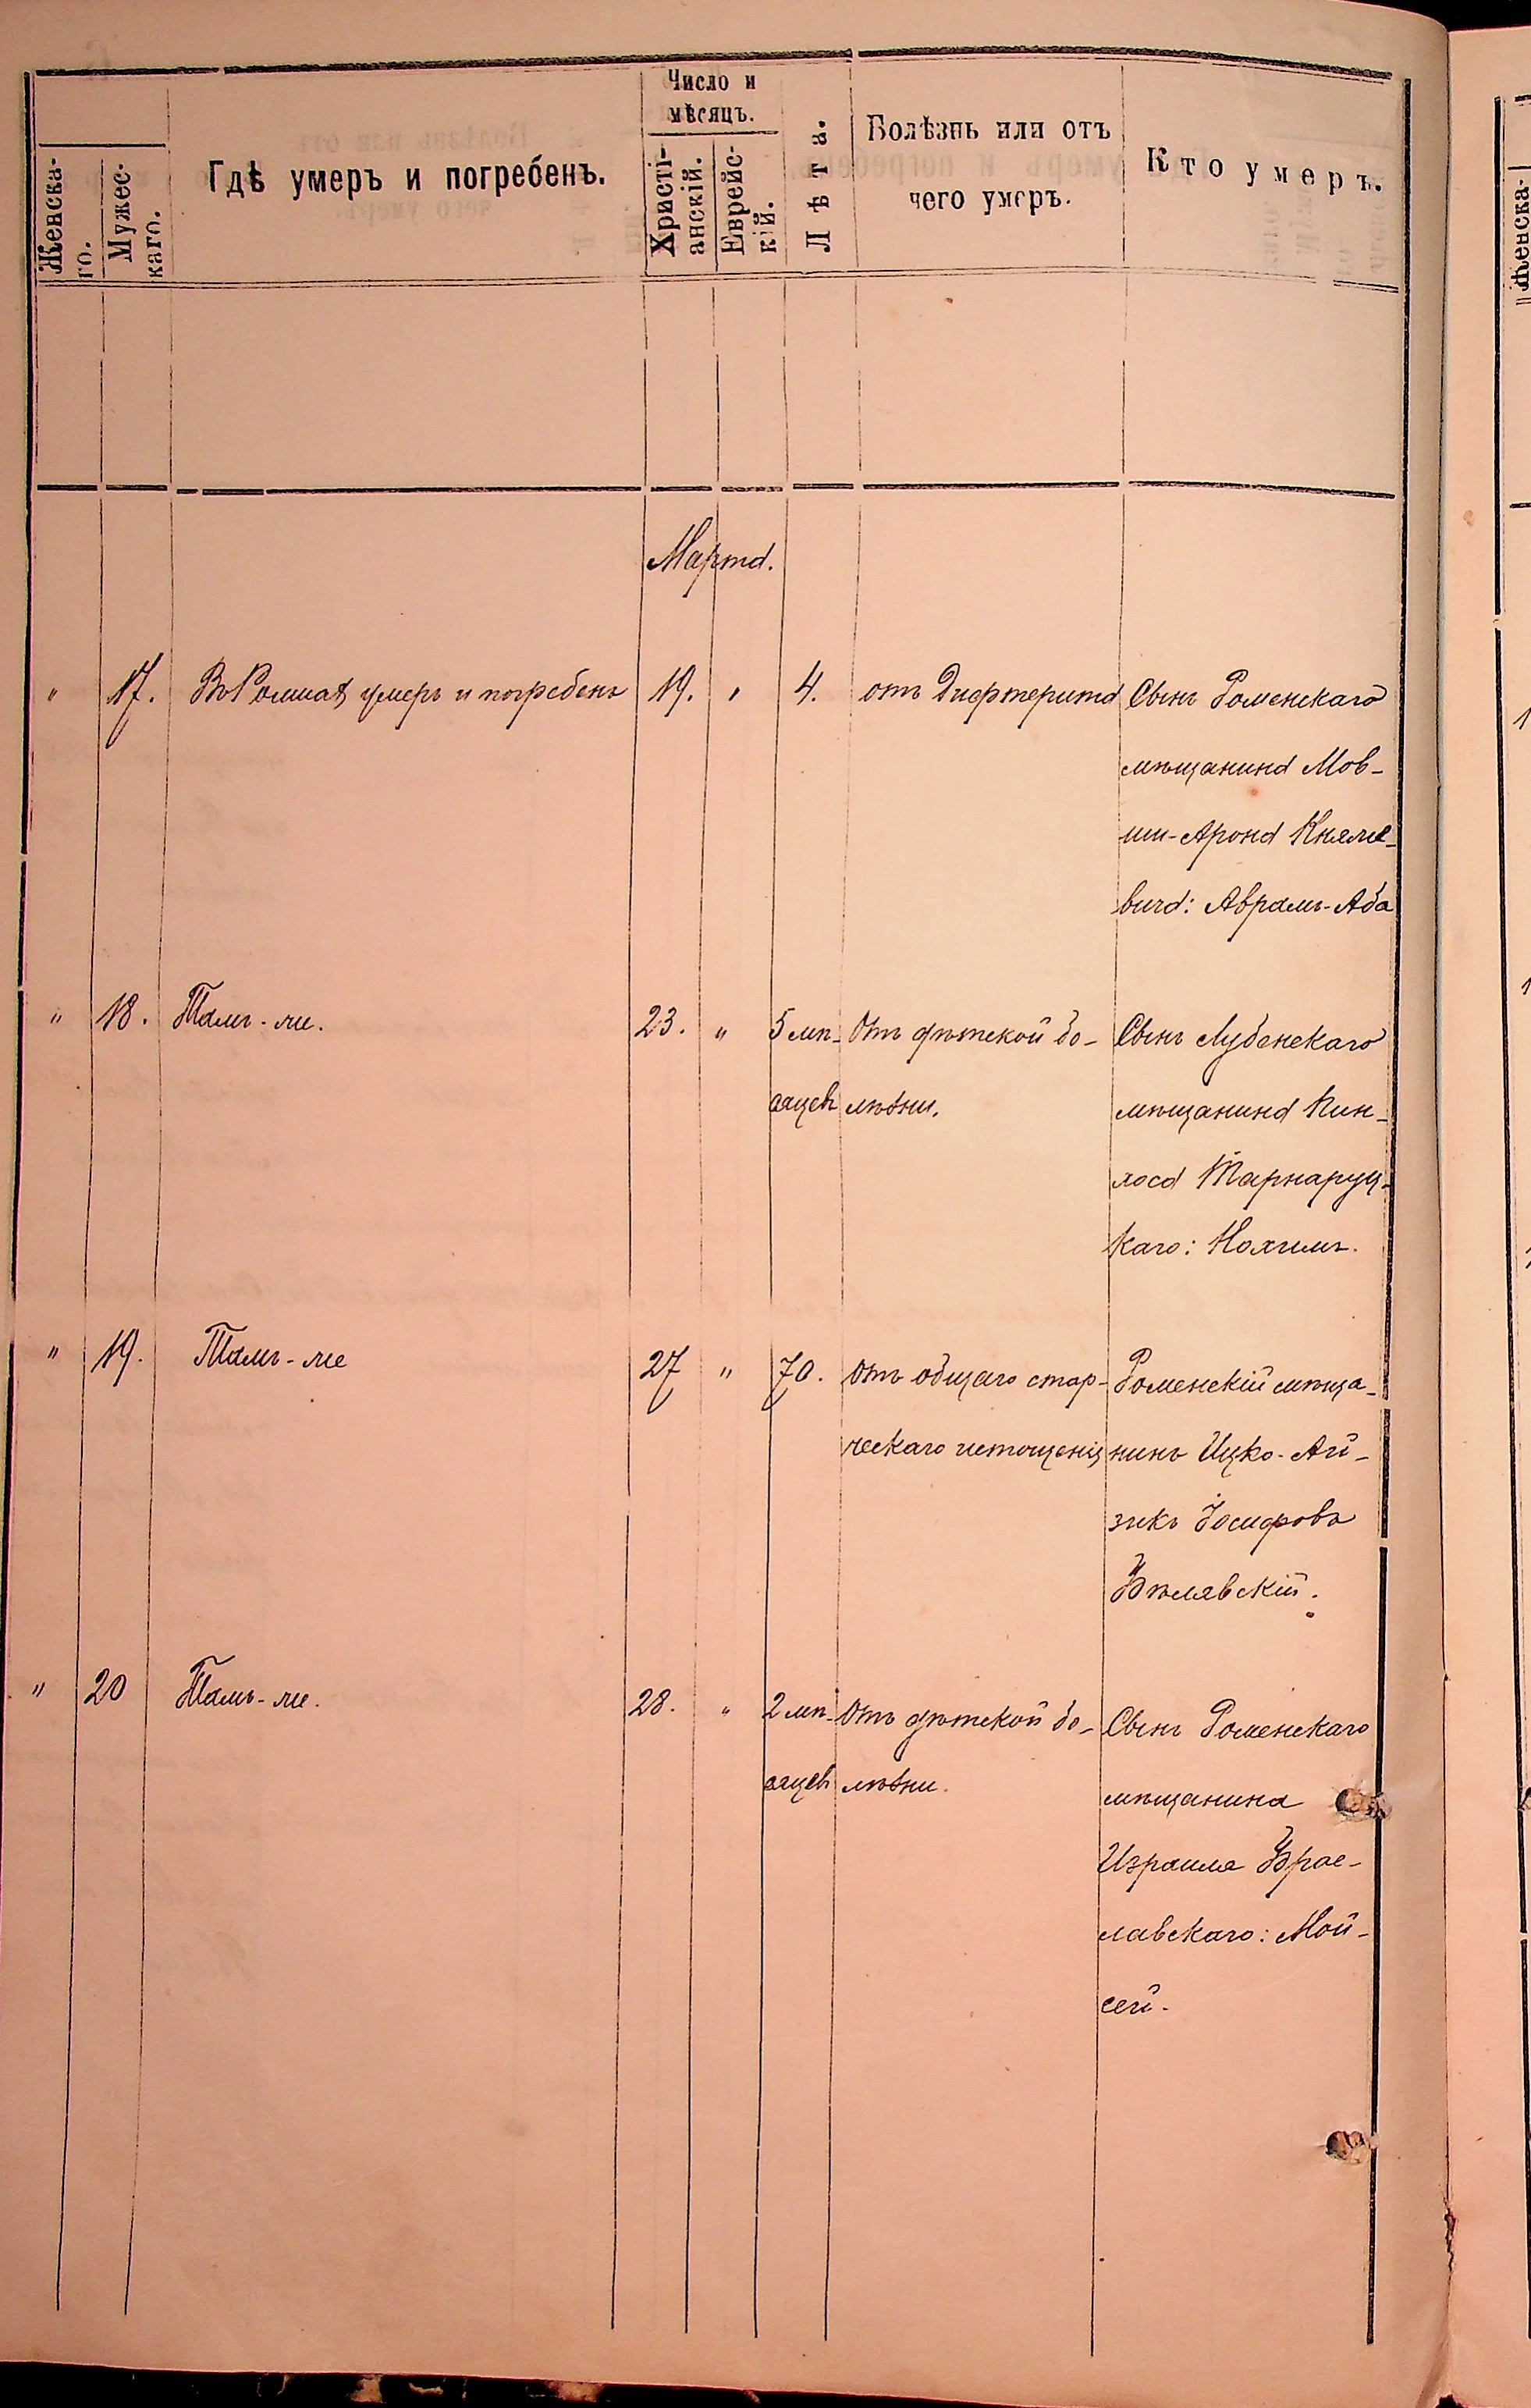 Женска-
го.
Мужес-
каго.
Гдѣ умеръ и погребенъ.
Число и
мѣсяцъ.
Христі-
анскій.
Еврейс-
кій.
Лѣта.
Болѣзнь или отъ
чего умеръ.
Кто умеръ.
Марта.
" 17. Въ Ромнахъ умеръ и погребенъ 19. " 4. отъ Дифтерита Сынъ Роменскаго
мѣщанина Мов-
ши-Арона Княже-
вича: Аврамъ-Аба
" 18. Тамъ-же. 23. " 5 мѣ- Отъ дѣтской бо- Сынъ Лубенскаго
сяцевъ лѣзни. мѣщанина Пин-
хоса Тарнаруц-
каго: Нохимъ.
" 19. Тамъ-же 27 " 70. Отъ общаго стар- Роменскій мѣща-
ческаго истощенія нинъ Ицко-Ай-
зикъ Іосифовъ
Бѣлявскій.
" 20 Тамъ-же. 28. " 2 мѣ- Отъ дѣтской бо- Сынъ Роменскаго
сяцевъ лѣзни. мѣщанина
Израиля Брас-
лавскаго: Мой-
сей.
Женска-